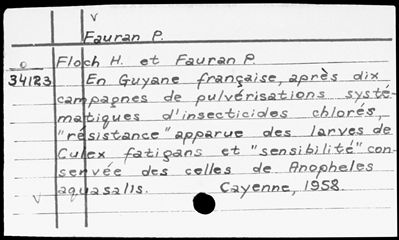 v
Fauran P.
Floch H. et Fauran P.
34123 En Guyane française, après dix
campagnes de pulvérisations systé-
matiques d'insecticides chlorés,
"résistance" apparue des larves de
Culex fatigans et "sensibilité" con-
servée des celles de Anopheles
aquasalis. Cayenne, 1958.
v